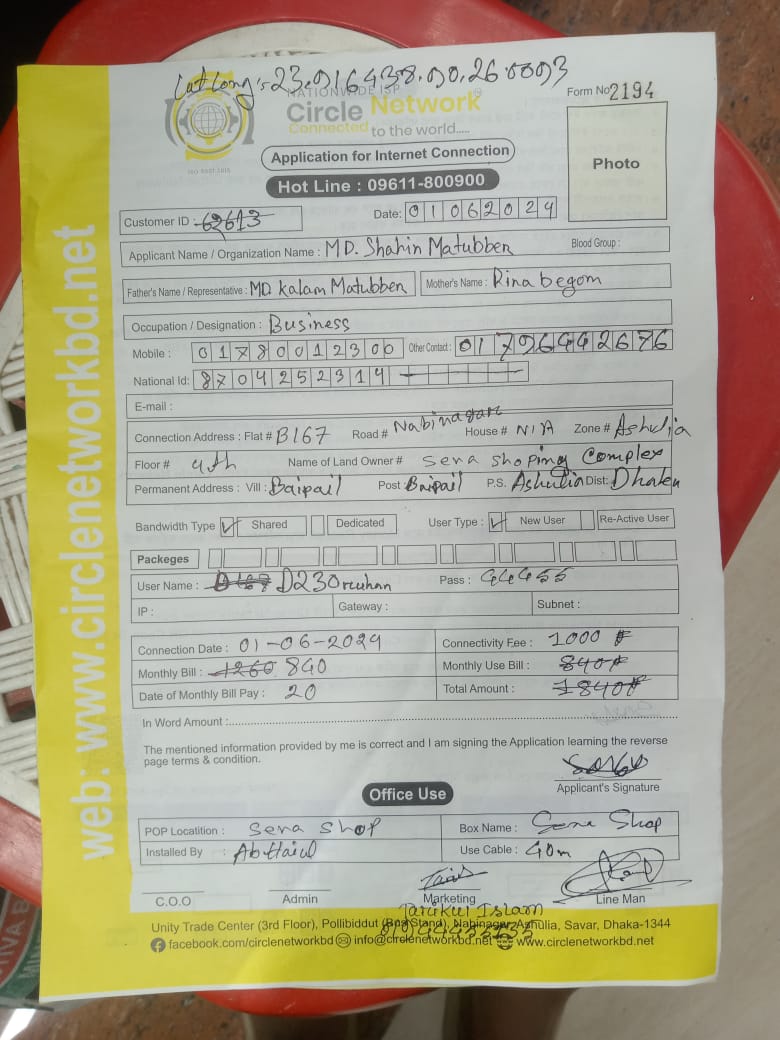 Lat Long's 23.916438.90.260003
NATIONWIDE ISP
Circle Network
Connected to the world.....
ISO 9001:2015
Form No 2194
Application for Internet Connection
Photo
Hot Line : 09611-800900
Customer ID : 62613
Date: 01062024
Applicant Name / Organization Name : MD. Shahin Matubber
Blood Group :
Father's Name / Representative : MD. Kalam Matubber
Mother's Name : Rina begom
Occupation / Designation : Business
Mobile : 01780012300
Other Contact : 01726442676
National Id: 8704252314
E-mail :
Connection Address : Flat # B167 Road # Nabinagar House # N/A Zone # Ashulia
Floor # 4th Name of Land Owner # Sena Shoping Complex
Permanent Address : Vill : Baipail Post : Baipail P.S. Ashulia Dist: Dhaka
Bandwidth Type ✓ Shared Dedicated User Type : ✓ New User Re-Active User
Packeges
User Name : D230ruhan Pass : 444455
IP : Gateway : Subnet :
Connection Date : 01-06-2024
Connectivity Fee : 1000
Monthly Bill : 1260 840
Monthly Use Bill : 840
Date of Monthly Bill Pay : 20
Total Amount : 1840
In Word Amount :
The mentioned information provided by me is correct and I am signing the Application learning the reverse
page terms & condition.
Applicant's Signature
Office Use
POP Locatition : Sena Shop
Box Name : Sena Shop
Installed By :
Use Cable : 40m
C.O.O
Admin
Marketing
Line Man
Tarikul Islam
Unity Trade Center (3rd Floor), Pollibiddut (Bus Stand), Nabinagar, Ashulia, Savar, Dhaka-1344
facebook.com/circlenetworkbd info@circlenetworkbd.net www.circlenetworkbd.net
web: www.circlenetworkbd.net